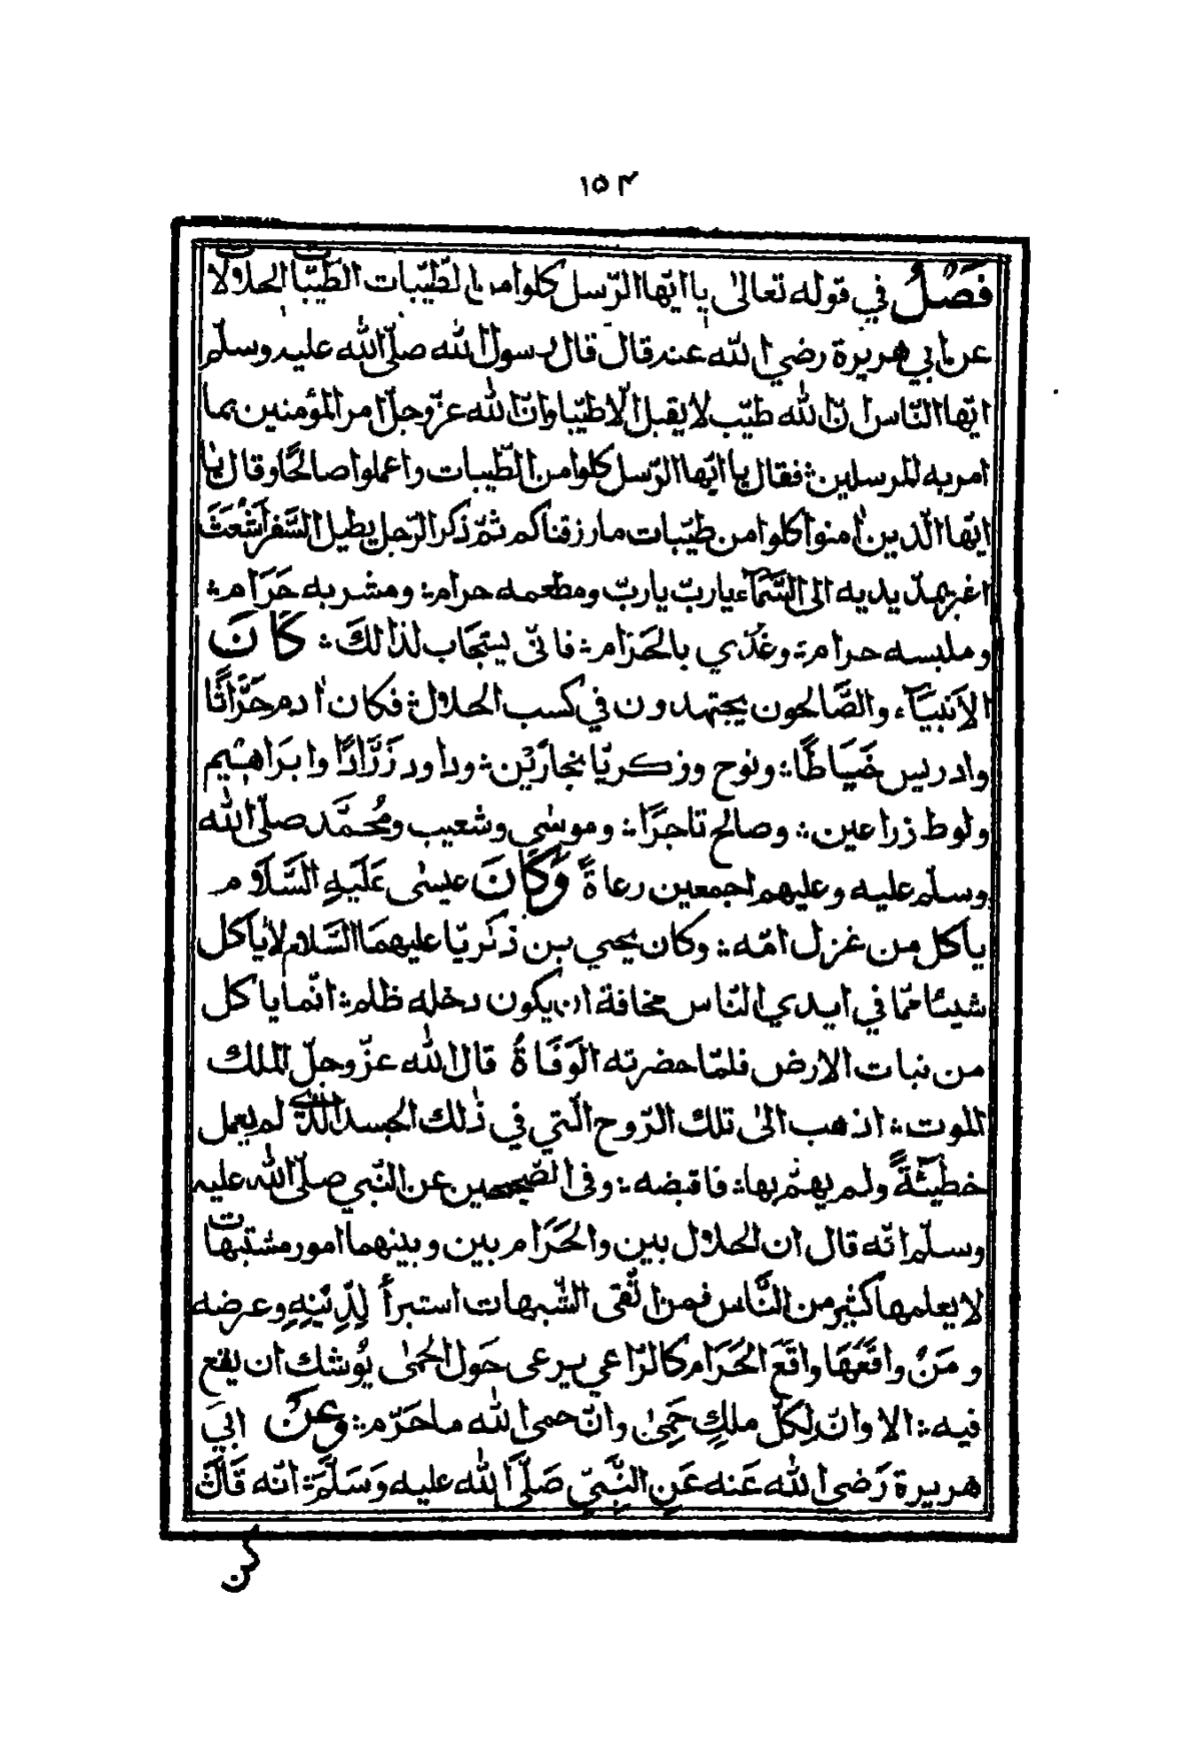 ١٥٣
فَصْلٌ في قوله تعالىٰ يا ايّها الرّسل كلوا من الطّيّبات الطّيّبات الحلالات
عن ابي هريرة رضي الله عنه قال قال رسول الله صلّى الله عليه وسلّم
ايّها النّاس انّ الله طيّب لا يقبل الّا طيّبا وانّ الله عزّ وجلّ امر المؤمنين بما
امر به المرسلين ؞ فقال يا ايّها الرّسل كلوا من الطّيبات واعملوا صالحًا وقال يا
ايّها الّذين اٰمنوا كلوا من طيّبات ما رزقناكم ثمّ ذكر الرّجل يطيل السَّفر اَشْعَثَ
اغبر يمدّ يديه الى السَّمآء يا ربّ يا ربّ ومطعمه حرام ؞ ومشربه حَرَام ؞
وملبسه حرام ؞ وغُذي بالحَرام ؞ فانّى يستجَاب لذالكَ ؞ كَانَ
الاَنبيَآء والصَّالحون يجتهدون في كسب الحلال ؞ فكان اٰدم حَرَّاثًا
وادريس خَيَاطًا ؞ ونوح وزكريّا نجارَيْن ؞ وداود زَرَّادًا وابرَاهيْم
ولوط زراعين ؞ وصالح تاجرًا ؞ وموسٰى وشعيب ومُحمَّد صلّى الله
وسلّم عليه وعليهم اجمعين رعاةً وَكَانَ عيسٰى عَلَيهِ السَّلَام
ياكل من غزل امّه ؞ وكان يحيي بن زكَريّا عليهمَا السَّلام لا يأكل
شيئا ممّا في ايدي النّاس مخافة ان يكون دخله ظلم ؞ انّما ياكل
من نبات الارض فلمّا حضرته الوَفَاةُ قال الله عزّ وجلّ لملك
الموت ؞ اذهب الىٰ تلك الرّوح الّتي في ذٰلك الجسد الّذي لم يعمل
خطيْئةً ولم يهتم بها ؞ فاقبضه ؞ وفى الصّحيحين عن النّبي صلّى الله عليه
وسلّم انّه قال ان الحلال بين والحَرَام بين وبينهما امور مشتبهات
لا يعلمها كثير من النَّاس فمن اتّقى الشّبهات استبرأ لِدِيْنِهِ وعرضه
ومَنْ واقَعَهَا واقَعَ الحَرَام كالرّاعي يرعى حَول الحِمىٰ يُوشك ان يقع
فيه ؞ الا وانّ لِكلّ ملكٍ حِمىٰ وانّ حمى الله ما حَرّم ؞ وعَنْ ابيَ
هريرة رَضى الله عَنه عَنِ النَّبيّ صَلَّى الله عليه وَسَلَّمَ ؞ انّه قَالَ